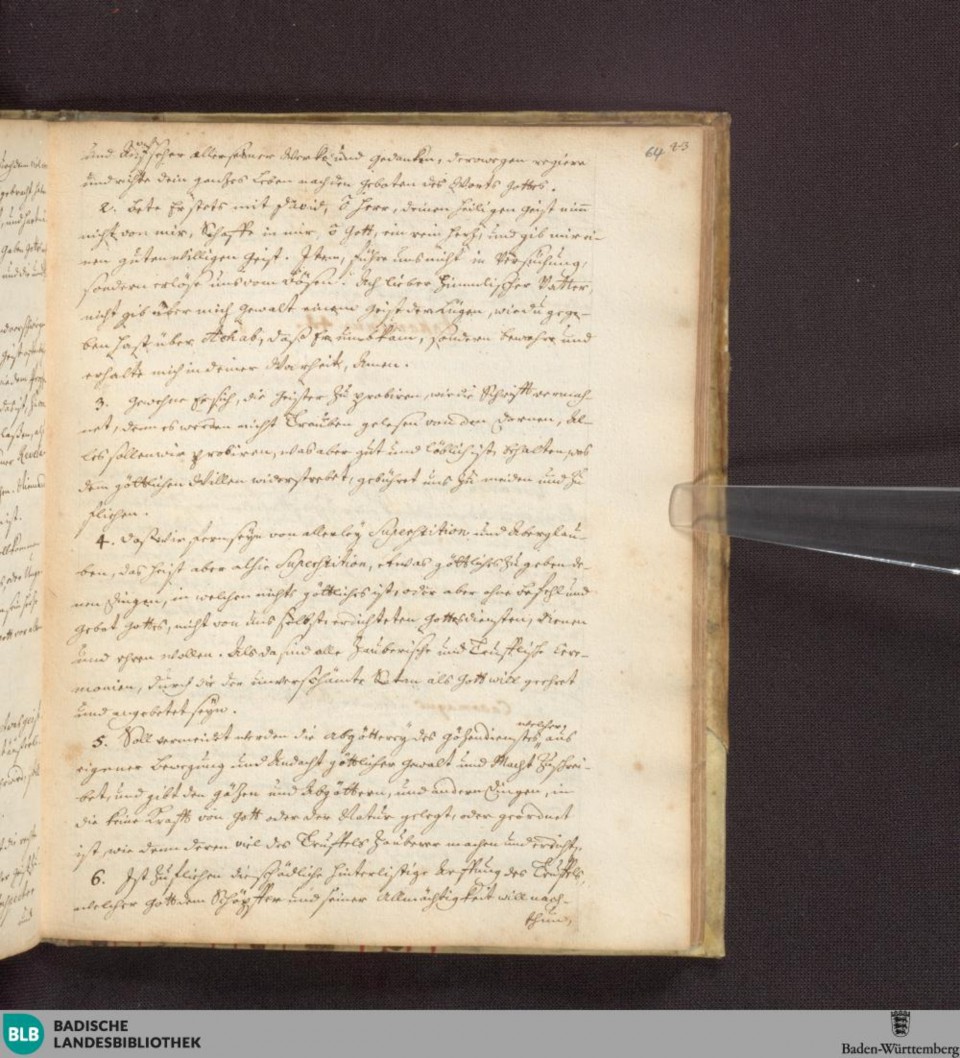 64 83
und Aufseher aller seiner Werke und Gedanken, derowegen regiere
und richte dein gantzes Leben nach den Geboten des Worts Gottes.
2. Bete Er stets mit David, ô Herr, deinen heiligen Geist nim̄
nicht von mir, Schaffe in mir, ô Gott, ein rein Hertz, und gib mir ei-
nen guten willigen Geist. Item, führe uns nicht in Versuchung,
sondern erlöse uns vom Bösen. Ach lieber Himmlischer Vatter,
nicht gib über mich Gewalt einem Geist der Lügen, wie du gege-
ben hast über Achab, daß Er umbkam, sondern bewahre und
erhalte mich in deiner Warheit, Amen.
3. Gewehne Er sich, die Geister zu probiren, wie die Schrifft vermah-
net, denn es werden nicht Trauben gelesen von den Dornen, Al-
les sollen wir probiren, was aber gut und löblich ist, behalten, was
dem göttlichen Willen widerstrebet, gebühret uns zu meiden und zu
fliehen.
4. Daß wir fern seyn von allerley Superstition und Aberglau-
ben, das heist aber alhie Superstition, etwas göttliches zu geben de-
nen Dingen, in welchen nichts göttliches ist, oder aber ohne Befehl und
Gebot Gottes, mit von uns selbst erdichteten Gottesdiensten, dienen
und ehren wollen. Als da sind alle Zauberische und Teufflische Cere-
monien, durch die der unverschämte Satan als Gott will geehret
und angebetet seyn.
5. Soll vermeidet werden die Abgötterey des Götzendienstes welcher aus
eigener Bewegung und Andacht göttlicher Gewalt und Macht zuschrei-
bet, und gibt den Götzen und Abgöttern, und andern Dingen, in
die keine Krafft von Gott oder der Natur gelegt, oder geordnet
ist, wie denn deren viel des Teuffels Zauberer machen und
6. Ist zu fliehen die schädliche hinterlistige des Teuffels,
welcher Gott dem Schöpffer und seiner Allmächtigkeit will nach-
thun,
BLB
BADISCHE
LANDESBIBLIOTHEK
Baden-Württemberg